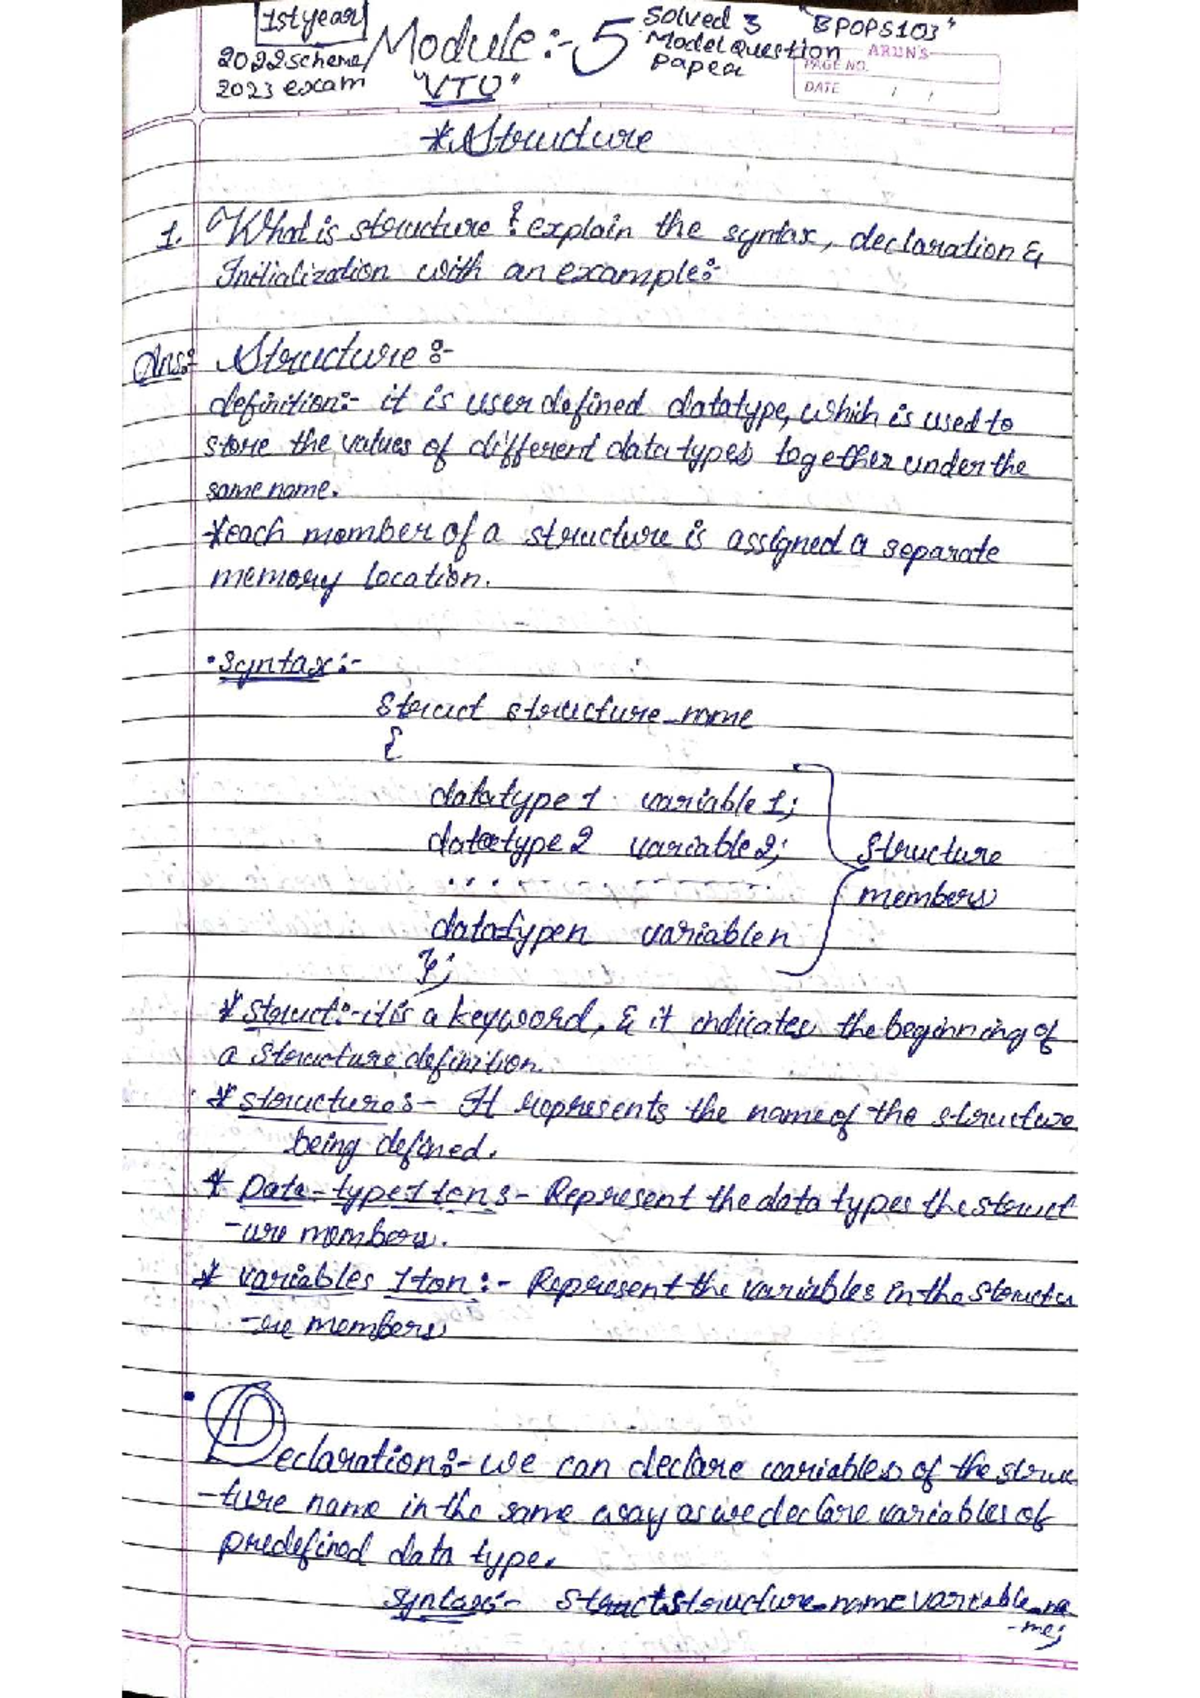 1st year
2022 scheme/
2023 exam
Module:- 5
"VTU"
Solved 3
Model question
paper
"BPOPS103"
ARUN'S
PAGE NO.
DATE / /
* Structure
1. What is structure? explain the syntax, declaration &
Initialization with an example:-
Ans:- Structure:-
definition:- it is user defined datatype, which is used to
store the values of different data types together under the
same name.
* each member of a structure is assigned a separate
memory location.
• Syntax:-
Struct structure_name
{
datatype 1 variable 1;
datatype 2 variable 2;
. . . . . . - - - - - - - -
datatypen variablen
};
Structure
members
* Struct:- it is a keyword, & it indicates the beginning of
a structure definition.
* structure:- It represents the name of the structure
being defined.
* Data-type 1 to n:- Represent the data types the struct
-ure members.
* variables 1 to n:- Represent the variables in the structu
-re members
• Declaration:- we can declare variables of the struc
-ture name in the same way as we declare variables of
predefined data type.
syntax:- Struct structure_name variable_na
-me;